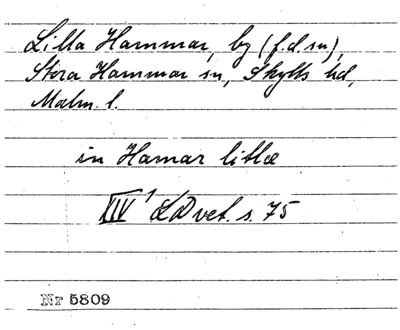 Lilla Hammar, by (f.d. sn),
Stora Hammar sn, Skytts hd,
Malm. l.
in Hamar litlæ
XIV¹ LDvet. s. 75
Nr 5809